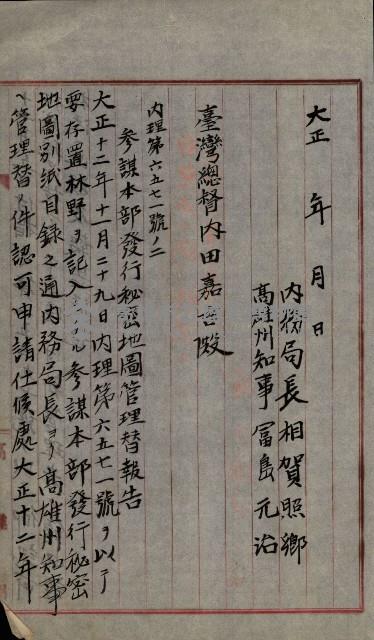 大正　年　月　日
内務局長相賀照郷
高雄州知事冨島元治
臺灣總督内田嘉吉殿
内理第六五七一號ノ二
參謀本部發行秘密地圖管理替報告
大正十二年十一月二十九日内理第六五七一號ヲ以テ
要存置林野ヲ記入
參謀本部發行秘密
地圖別紙目録之通内務局長ヨリ高雄州知事
ヘ管理替ノ件認可申請仕候處大正十二年